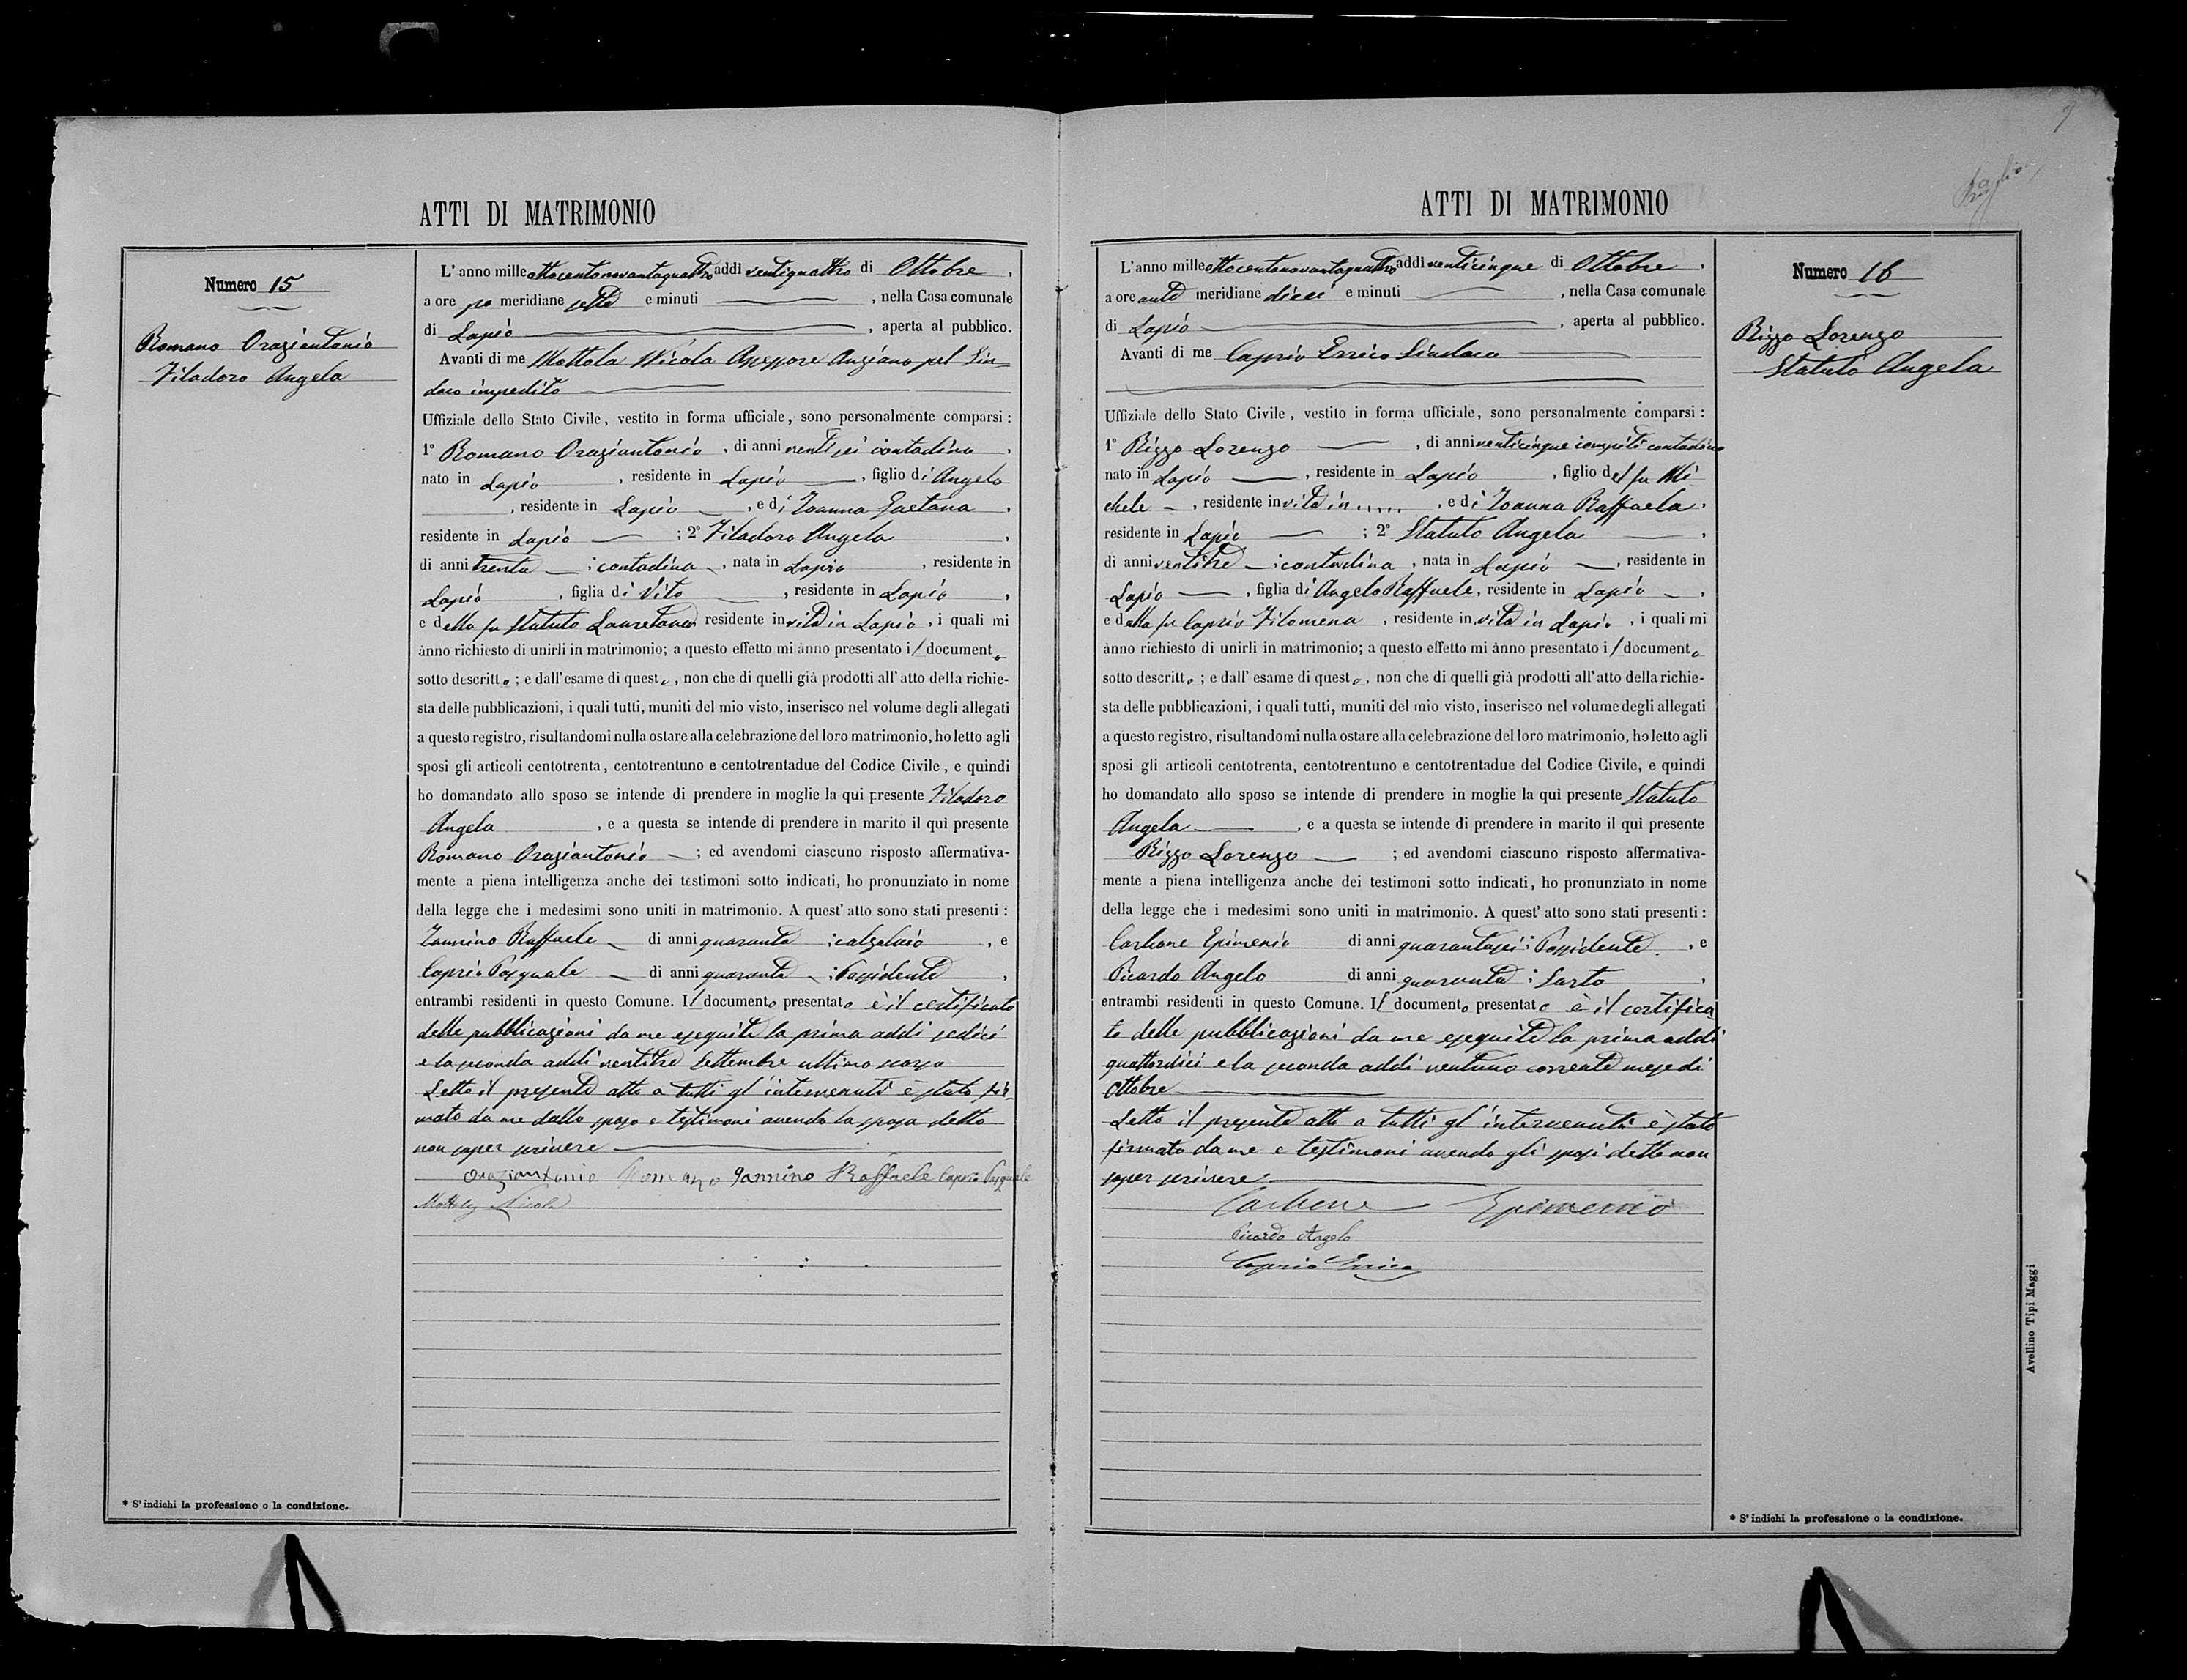 ATTI DI MATRIMONIO
Numero 15
Romano Oraziantonio
Filadoro Angela
L'anno milleottocentonovantaquattro addi ventiquattro di Ottobre,
a ore po meridiane sette e minuti , nella Casa comunale
di Lapio , aperta al pubblico.
Avanti di me Mottola Nicola Assessore Anziano pel Sin=
daco impedito
Uffiziale dello Stato Civile, vestito in forma ufficiale, sono personalmente comparsi:
1° Romano Oraziantonio, di anni ventisei contadino,
nato in Lapio, residente in Lapio, figlio di Angelo
, residente in Lapio, e di Gaetana,
residente in Lapio ; 2° Filadoro Angela,
di anni trenta ; contadina, nata in Lapio, residente in
Lapio, figlia di Vito, residente in Lapio,
e della fu Statuto residente in vita in Lapio, i quali mi
ànno richiesto di unirli in matrimonio; a questo effetto mi ànno presentato il documento
sotto descritto; e dall'esame di questo, non che di quelli già prodotti all'atto della richie-
sta delle pubblicazioni, i quali tutti, muniti del mio visto, inserisco nel volume degli allegati
a questo registro, risultandomi nulla ostare alla celebrazione del loro matrimonio, ho letto agli
sposi gli articoli centotrenta, centotrentuno e centotrentadue del Codice Civile, e quindi
ho domandato allo sposo se intende di prendere in moglie la qui presente Filadoro
Angela , e a questa se intende di prendere in marito il qui presente
Romano Oraziantonio ; ed avendomi ciascuno risposto affermativa-
mente a piena intelligenza anche dei testimoni sotto indicati, ho pronunziato in nome
della legge che i medesimi sono uniti in matrimonio. A quest'atto sono stati presenti:
Iannino Raffaele di anni quaranta ; calzolaio, e
Caprio Pasquale di anni quaranta ; Possidente,
entrambi residenti in questo Comune. Il documento presentato è il certificato
delle pubblicazioni da me eseguite la prima addi sedici
e la seconda addi ventitre Settembre ultimo scorso
Letto il presente atto a tutti gl'intervenuti è stato fir-
mato da me dallo sposo e testimoni avendo la sposa detto
non saper scrivere
Oraziantonio Romano Iannino Raffaele Caprio Pasquale
Mottola Nicola
* S'indichi la professione o la condizione.
ATTI DI MATRIMONIO
Numero 16
Rizzo Lorenzo
Statuto Angela
L'anno milleottocentonovantaquattro addi venticinque di Ottobre,
a ore ante meridiane dieci e minuti , nella Casa comunale
di Lapio , aperta al pubblico.
Avanti di me Caprio Errico Sindaco
Uffiziale dello Stato Civile, vestito in forma ufficiale, sono personalmente comparsi:
1° Rizzo Lorenzo , di anni venticinque compiti contadino
nato in Lapio , residente in Lapio , figlio del fu Mi
chele , residente in vita in ..... , e di Raffaela,
residente in Lapio ; 2° Statuto Angela,
di anni ventitre ; contadina, nata in Lapio, residente in
Lapio , figlia di Angelo Raffaele, residente in Lapio,
e della fu Caprio Filomena , residente in vita in Lapio, i quali mi
ànno richiesto di unirli in matrimonio; a questo effetto mi ànno presentato il documento
sotto descritto; e dall'esame di questo, non che di quelli già prodotti all'atto della richie-
sta delle pubblicazioni, i quali tutti, muniti del mio visto, inserisco nel volume degli allegati
a questo registro, risultandomi nulla ostare alla celebrazione del loro matrimonio, ho letto agli
sposi gli articoli centotrenta, centotrentuno e centotrentadue del Codice Civile, e quindi
ho domandato allo sposo se intende di prendere in moglie la qui presente Statuto
Angela , e a questa se intende di prendere in marito il qui presente
Rizzo Lorenzo ; ed avendomi ciascuno risposto affermativa-
mente a piena intelligenza anche dei testimoni sotto indicati, ho pronunziato in nome
della legge che i medesimi sono uniti in matrimonio. A quest'atto sono stati presenti:
Carbone Epimenio di anni quarantasei ; Possidente, e
Picardo Angelo di anni quaranta ; Sarto,
entrambi residenti in questo Comune. Il documento presentato è il certifica
to delle pubblicazioni da me eseguite la prima addi
quattordici e la seconda addi ventuno corrente mese di
Ottobre
Letto il presente atto a tutti gl'intervenuti è stato
firmato da me e testimoni avendo gli sposi detto non
saper scrivere
Carbone Epimenio
Picardo Angelo
Caprio Errico
* S'indichi la professione o la condizione.
Avellino Tipi Maggi